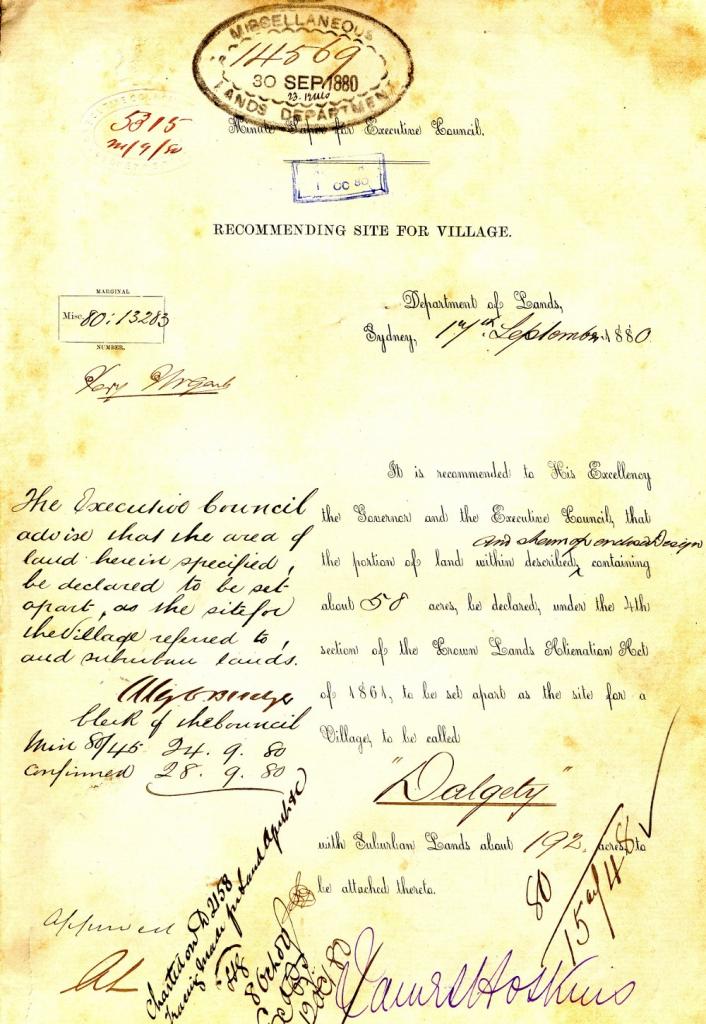 MISCELLANEOUS
14569
30 SEP 1880
LANDS DEPARTMENT
5315
Minute Paper for Executive Council.
RECOMMENDING SITE FOR VILLAGE.
MARGINAL
Misc. 80:13283
NUMBER.
Department of Lands,
Sydney, 17th September 1880.
Very Urgent
It is recommended to His Excellency
the Governor and the Executive Council, that
and shown on enclosed Design
the portion of land within described, containing
about 58 acres, be declared, under the 4th
section of the Crown Lands Alienation Act
of 1861, to be set apart as the site for a
Village, to be called
"Dalgety"
with Suburban Lands about 192 acres, to
be attached thereto.
The Executive Council
advise that the area of
land herein specified,
be declared to be set
apart, as the site for
the Village referred to,
and suburban lands.
Clerk of the Council
Min 80/45 24. 9. 80
confirmed 28. 9. 80
Approved
AL
Charted on D 2158
8 Oct 80
12 Oct 80
80
James Hoskins